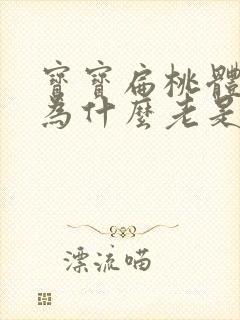 寶寶扁桃體
為什麼老是
漂流喵